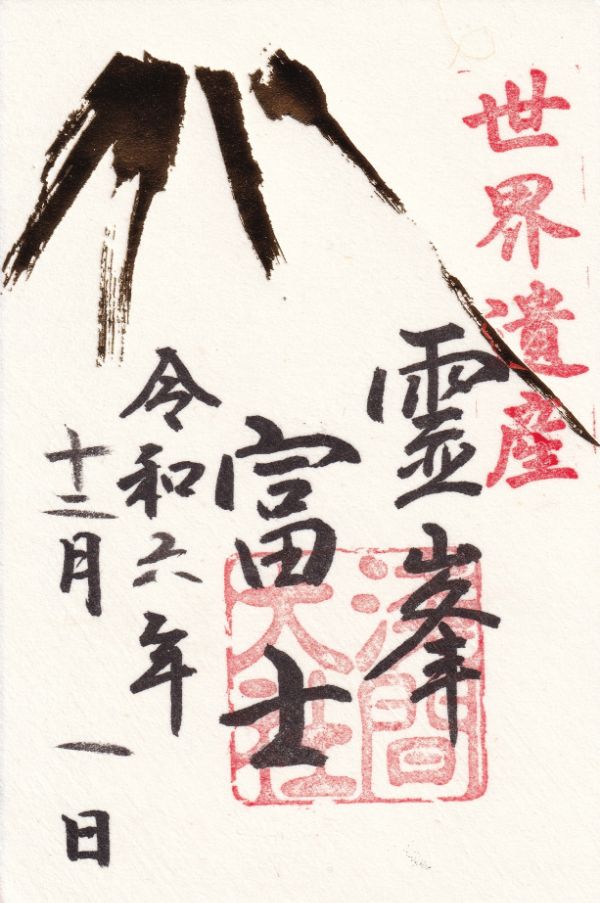 世界遺産
霊峯
富士
浅間大社
令和六年
十二月一日